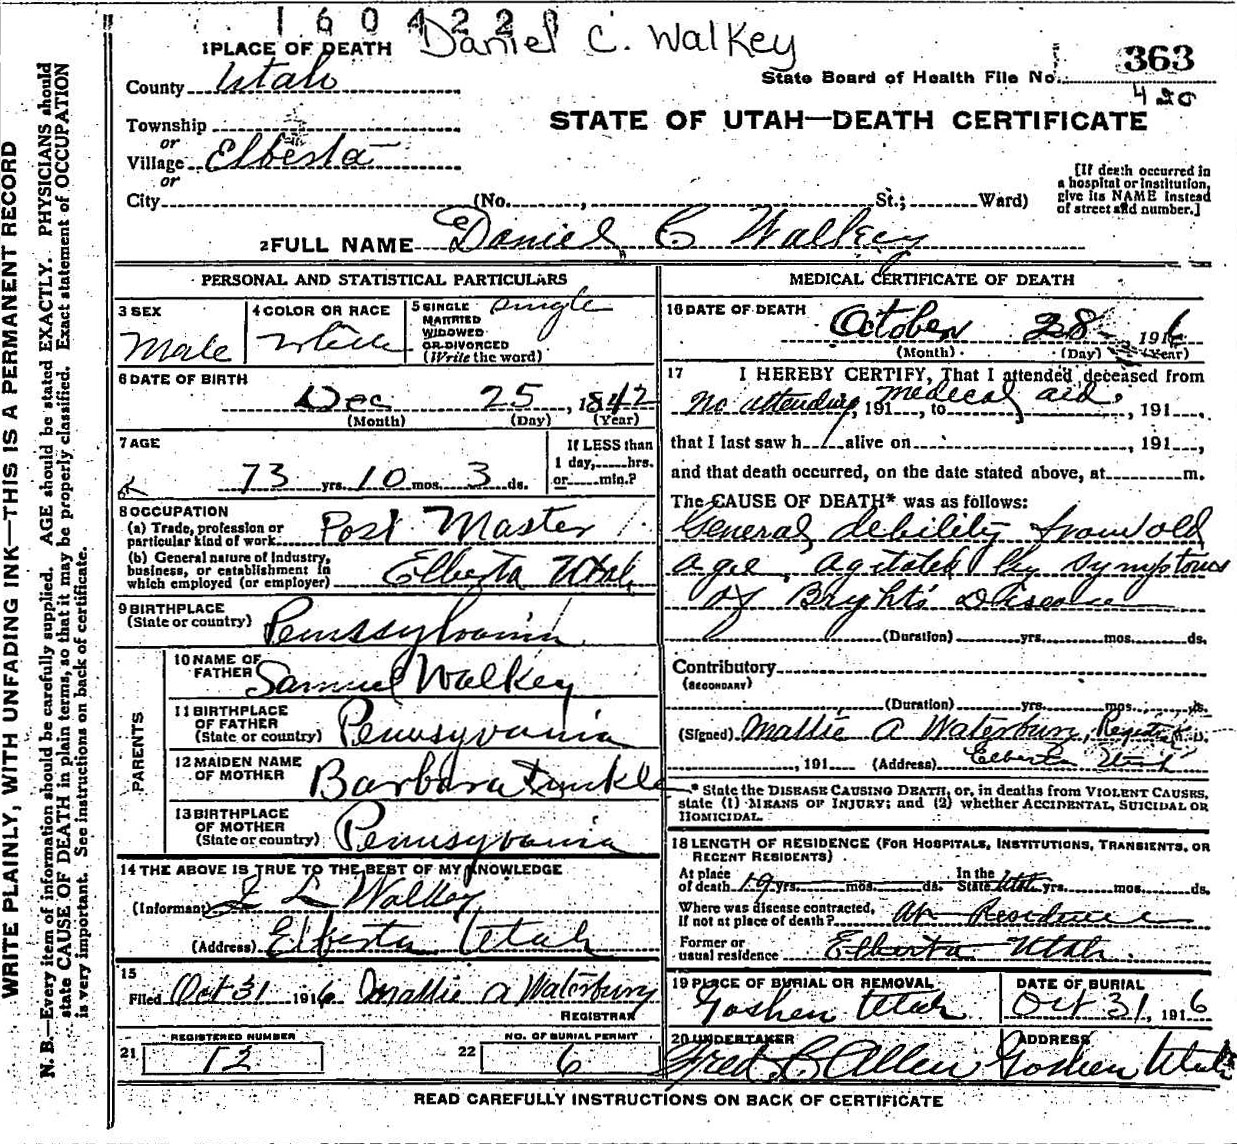 160422
Daniel C. Walkey
1 PLACE OF DEATH
363
State Board of Health File No.
420
County Utah
STATE OF UTAH—DEATH CERTIFICATE
Township
or
Village Elberta
or
City (No. , St.; Ward)
[If death occurred in
a hospital or institution,
give its NAME instead
of street and number.]
2 FULL NAME Daniel C Walkey
PERSONAL AND STATISTICAL PARTICULARS
3 SEX
Male
4 COLOR OR RACE
White
5 SINGLE
MARRIED
WIDOWED
OR DIVORCED
(Write the word)
Single
6 DATE OF BIRTH
Dec 25, 1842
(Month) (Day) (Year)
7 AGE
73 yrs. 10 mos. 3 ds.
If LESS than
1 day, hrs.
or min.?
8 OCCUPATION
(a) Trade, profession or
particular kind of work Post Master
(b) General nature of industry,
business, or establishment in
which employed (or employer) Elberta Utah
9 BIRTHPLACE
(State or country) Pennssylvania
PARENTS
10 NAME OF
FATHER Samuel Walkey
11 BIRTHPLACE
OF FATHER
(State or country) Pennsyvania
12 MAIDEN NAME
OF MOTHER Barbara
13 BIRTHPLACE
OF MOTHER
(State or country) Pennsyvania
14 THE ABOVE IS TRUE TO THE BEST OF MY KNOWLEDGE
(Informant) L Walkey
(Address) Elberta Utah
15
Filed Oct 31 1916 Mallie A Waterbury
REGISTRAR
REGISTERED NUMBER
21 12
NO. OF BURIAL PERMIT
22 6
MEDICAL CERTIFICATE OF DEATH
16 DATE OF DEATH
October 28 1916
(Month) (Day) (Year)
17 I HEREBY CERTIFY, That I attended deceased from
No attending, 191 , to medical aid. , 191 ,
that I last saw h alive on , 191 ,
and that death occurred, on the date stated above, at m.
The CAUSE OF DEATH* was as follows:
General debility from old
age, agitated by symptoms
of Bright's Disease
(Duration) yrs. mos. ds.
Contributory
(SECONDARY)
(Duration) yrs. mos. ds.
(Signed) Mallie A Waterbury, Registrar
, 191 (Address) Elberta Utah
* State the DISEASE CAUSING DEATH, or, in deaths from VIOLENT CAUSES,
state (1) MEANS OF INJURY; and (2) whether ACCIDENTAL, SUICIDAL OR
HOMICIDAL.
18 LENGTH OF RESIDENCE (FOR HOSPITALS, INSTITUTIONS, TRANSIENTS, OR
RECENT RESIDENTS)
At place
of death 19 yrs. mos. ds.
In the
State Utah yrs. mos. ds.
Where was disease contracted,
if not at place of death? At Residence
Former or
usual residence Elberta Utah
19 PLACE OF BURIAL OR REMOVAL
Goshen Utah
DATE OF BURIAL
Oct 31, 1916
20 UNDERTAKER
Fred C Allen
ADDRESS
Goshen Utah
READ CAREFULLY INSTRUCTIONS ON BACK OF CERTIFICATE
WRITE PLAINLY, WITH UNFADING INK—THIS IS A PERMANENT RECORD
N. B.—Every item of information should be carefully supplied. AGE should be stated EXACTLY. PHYSICIANS should
state CAUSE OF DEATH in plain terms, so that it may be properly classified. Exact statement of OCCUPATION
is very important. See instructions on back of certificate.